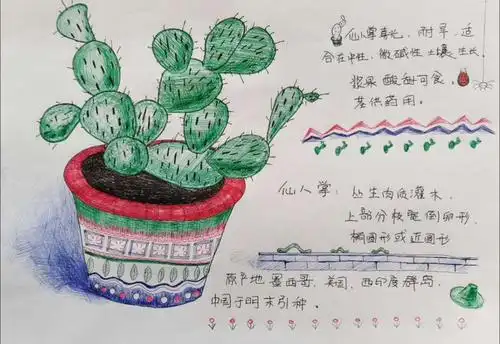 仙人掌喜光、耐旱，适
合在中性、微碱性土壤生长。
浆果酸甜可食，
茎供药用。
仙人掌：丛生肉质灌木，
上部分枝宽倒卵形，
椭圆形或近圆形
原产地墨西哥、美国、西印度群岛，
中国于明末引种。